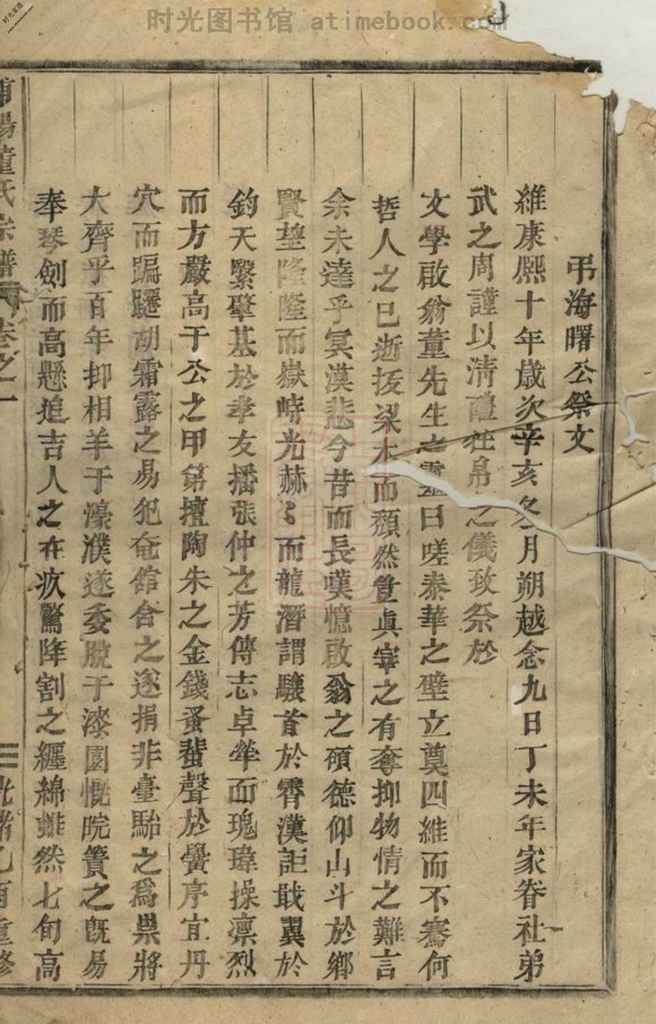 时光图书馆 atimebook.com
弔海曙公祭文
維康熙十年歲次辛亥冬月朔越念九日丁未年家眷社弟
武之周謹以清醴牲帛之儀致祭於
文學啟翁董先生之靈曰嗟泰華之壁立奠四維而不騫何
哲人之已逝拔梁木而頹然豈真宰之有奪抑物情之難言
余未達乎冥漠悲今昔而長嘆憶啟翁之碩德仰山斗於鄉
賢望隆隆而嶽峙光赫〻而龍潛謂驤首於霄漢詎戢翼於
鈞天緊肇基於孝友播張仲之芳傳志卓犖而瑰瑋操凛烈
而方嚴高于公之甲第擅陶朱之金錢蚤蜚聲於黌序宜丹
穴而蹁躚胡霜露之易犯奄館舍之遂捐非臺駘之為祟將
大齊乎百年抑相羊于濠濮遂委脫于漆園慨晥簀之旣易
奉琴劍而高懸追吉人之在疚驚降割之纏綿雖然七旬高
董氏宗譜 卷之一 光緒乙酉重修